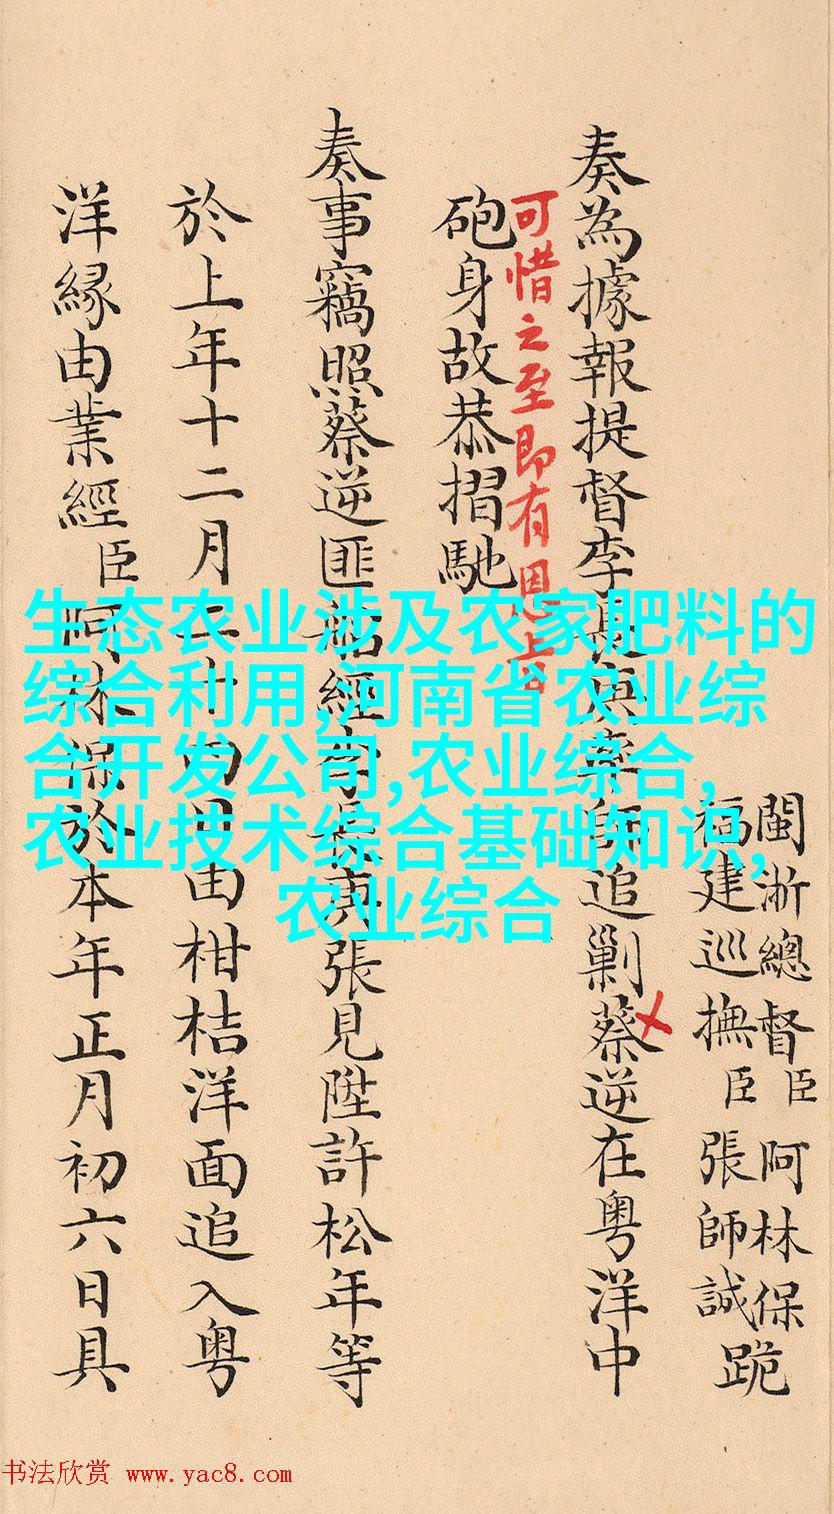 閩浙總督臣阿林保
福建巡撫臣張師誠跪
奏為據報提督李長庚率師追剿蔡逆在粵洋中
可惜之至即有恩旨
砲身故恭摺馳
奏事竊照蔡逆匪船經李長庚張見陞許松年等
於上年十二月二十四日由柑桔洋面追入粵
洋緣由業經臣阿林保於本年正月初六日具
生态农业涉及农家肥料的
综合利用,河南省农业综
合开发公司,农业综合,
农业技术综合基础知识,
农业综合
书法欣赏 www.yac8.com